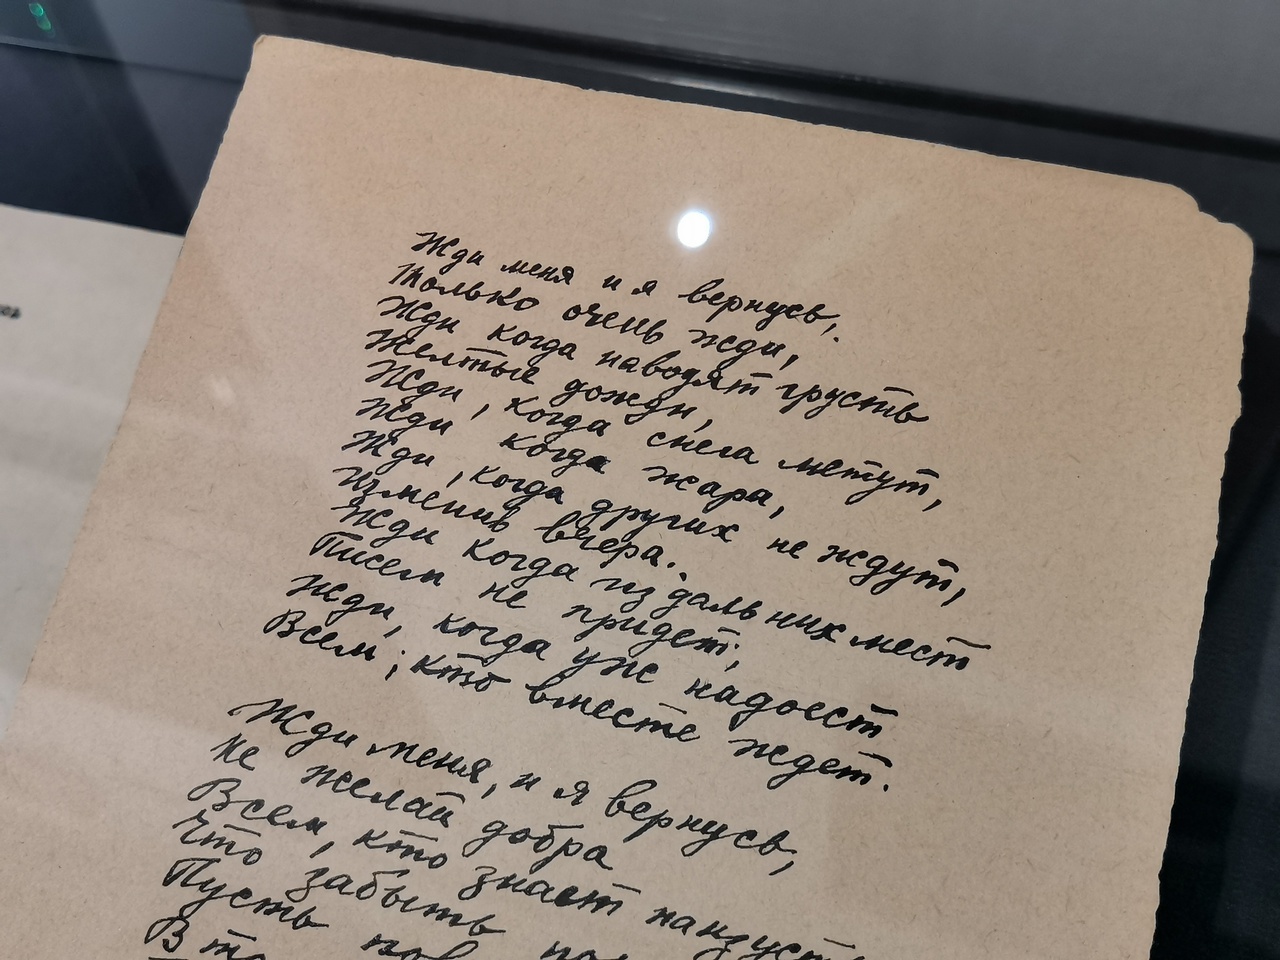 Жди меня и я вернусь,
Только очень жди,
Жди когда наводят грусть
Желтые дожди,
Жди, когда снега метут,
Жди когда жара,
Жди, когда других не ждут,
Изменив вчера.
Жди когда из дальних мест
Писем не придет,
Жди, когда уж надоест
Всем, кто вместе ждет.
Жди меня, и я вернусь,
Не желай добра
Всем, кто знает наизусть
Что забыть
Пусть
В